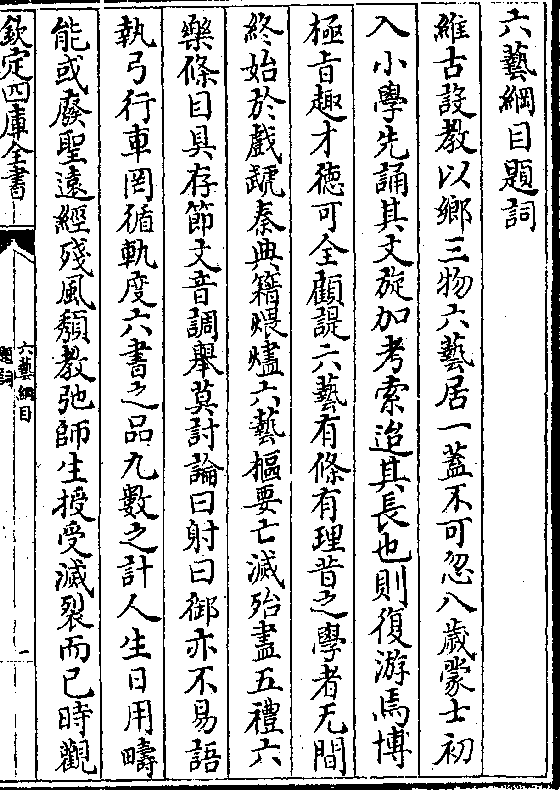 六藝綱目題詞
維古設教以鄉三物六藝居一蓋不可忽八歲蒙士初
入小學先誦其文旋加考索迨其長也則復游焉博
極旨趣才德可全顧諟六藝有條有理昔之學者无間
終始於戲虣秦典籍煨燼六藝樞要亡滅殆盡五禮六
樂條目具存節文音調舉莫討論曰射曰御亦不易語
執弓行車罔循軌度六書之品九數之計人生日用疇
能或廢聖遠經殘風頹教弛師生授受滅裂而已時觀
欽定四庫全書
六藝綱目
題詞
一